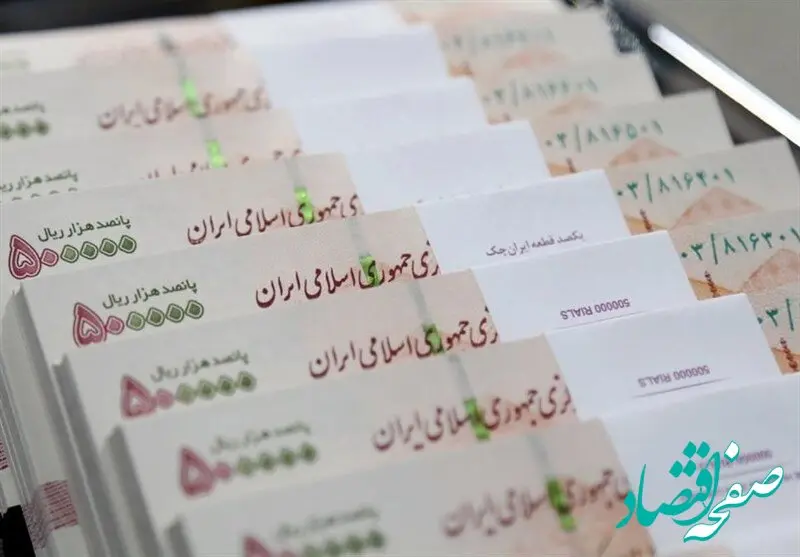 جمهوری اسلامی ایران
۸۱۶۶۰۱
پانصد هزار ریال
۰۳/۸۱۶۵۰۱
پانصد هزار ریال
۵۰۰۰۰۰
جمهوری اسلامی ایران
۰۳/۸۱۶۴۰۱
یکصد قطعه ایران چک
پانصد هزار ریال
۵۰۰۰۰۰
جمهوری اسلامی ایران
۰۳/۸۱۶۳۰۱
500000 RIALS
پانصد هزار ریال
۵۰۰۰۰۰
جمهوری اسلامی ایران
500000 RIALS
پانصد هزار ریال
۵۰۰۰۰۰
جمهوری اسلامی ایران
جمهوری اسلامی ایران
صفحه اقتصاد